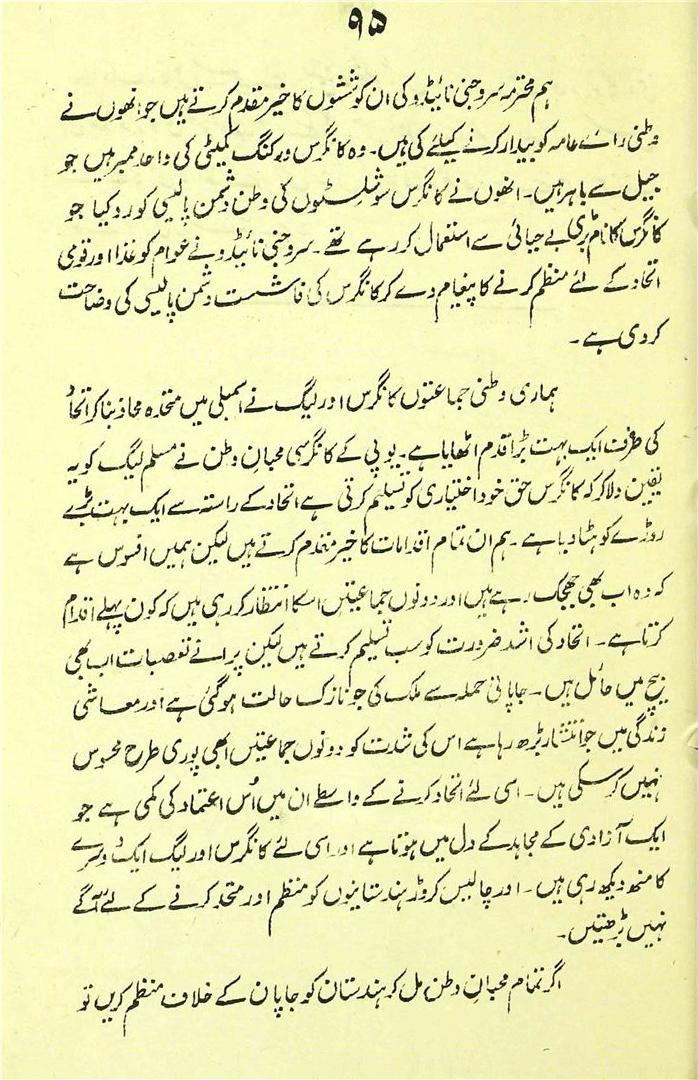 ۹۵
ہم محترمہ سروجنی نائیڈو کی ان کوششوں کا خیر مقدم کرتے ہیں جو انھوں نے
وطنی رائے عامہ کو بیدار کرنے کیلئے کی ہیں۔ وہ کانگرس ورکنگ کمیٹی کی واحد ممبر ہیں جو
جیل سے باہر ہیں۔ انھوں نے کانگرس سوشلسٹوں کی وطن دشمن پالیسی کو رد کیا جو
کانگرس کا نام بڑی بے حیائی سے استعمال کر رہے تھے۔ سروجنی نائیڈو نے عوام کو غذا اور قومی
اتحاد کے لئے منظم کرنے کا پیغام دے کر کانگرس کی فاشست دشمن پالیسی کی وضاحت
کر دی ہے۔
ہماری وطنی جماعتوں کانگرس اور لیگ نے اسمبلی میں متحدہ محاذ بنا کر اتحاد
کی طرف ایک بہت بڑا قدم اٹھایا ہے۔ یو پی کے کانگرسی محبان وطن نے مسلم لیگ کو یہ
یقین دلا کر کہ کانگرس حق خود اختیاری کو تسلیم کرتی ہے اتحاد کے راستہ سے ایک بہت بڑے
روڑے کو ہٹا دیا ہے۔ ہم ان تمام اقدامات کا خیر مقدم کرتے ہیں لیکن ہمیں افسوس ہے
کہ وہ اب بھی جھجک رہے ہیں اور دونوں جماعتیں اسکا انتظار کر رہی ہیں کہ کون پہلے اقدام
کرتا ہے۔ اتحاد کی اشد ضرورت کو سب تسلیم کرتے ہیں لیکن پرانے تعصبات اب بھی
بیچ میں حائل ہیں۔ جاپانی حملہ سے ملک کی جو نازک حالت ہو گئی ہے اور معاشی
زندگی میں جو انتشار بڑھ رہا ہے اس کی شدت کو دونوں جماعتیں ابھی پوری طرح محسوس
نہیں کر سکی ہیں۔ اسی لئے اتحاد کرنے کے واسطے ان میں اُس اعتماد کی کمی ہے جو
ایک آزادی کے مجاہد کے دل میں ہوتا ہے اور اسی لئے کانگرس اور لیگ ایک دوسرے
کا منھ دیکھ رہی ہیں۔ اور چالیس کروڑ ہندستانیوں کو منظم اور متحد کرنے کے لئے آگے
نہیں بڑھتیں۔
اگر تمام محبان وطن مل کر ہندستان کو جاپان کے خلاف منظم کریں تو